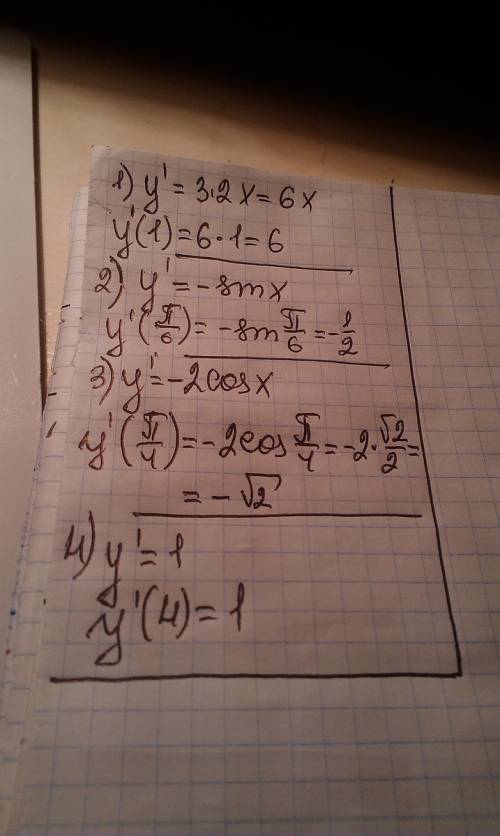 1) y' = 3·2x = 6x
y'(1) = 6·1 = 6
2) y' = -sinx
y'(π/6) = -sin π/6 = -1/2
3) y' = -2cosx
y'(π/4) = -2cos π/4 = -2·√2/2 =
= -√2
4) y' = 1
y'(4) = 1